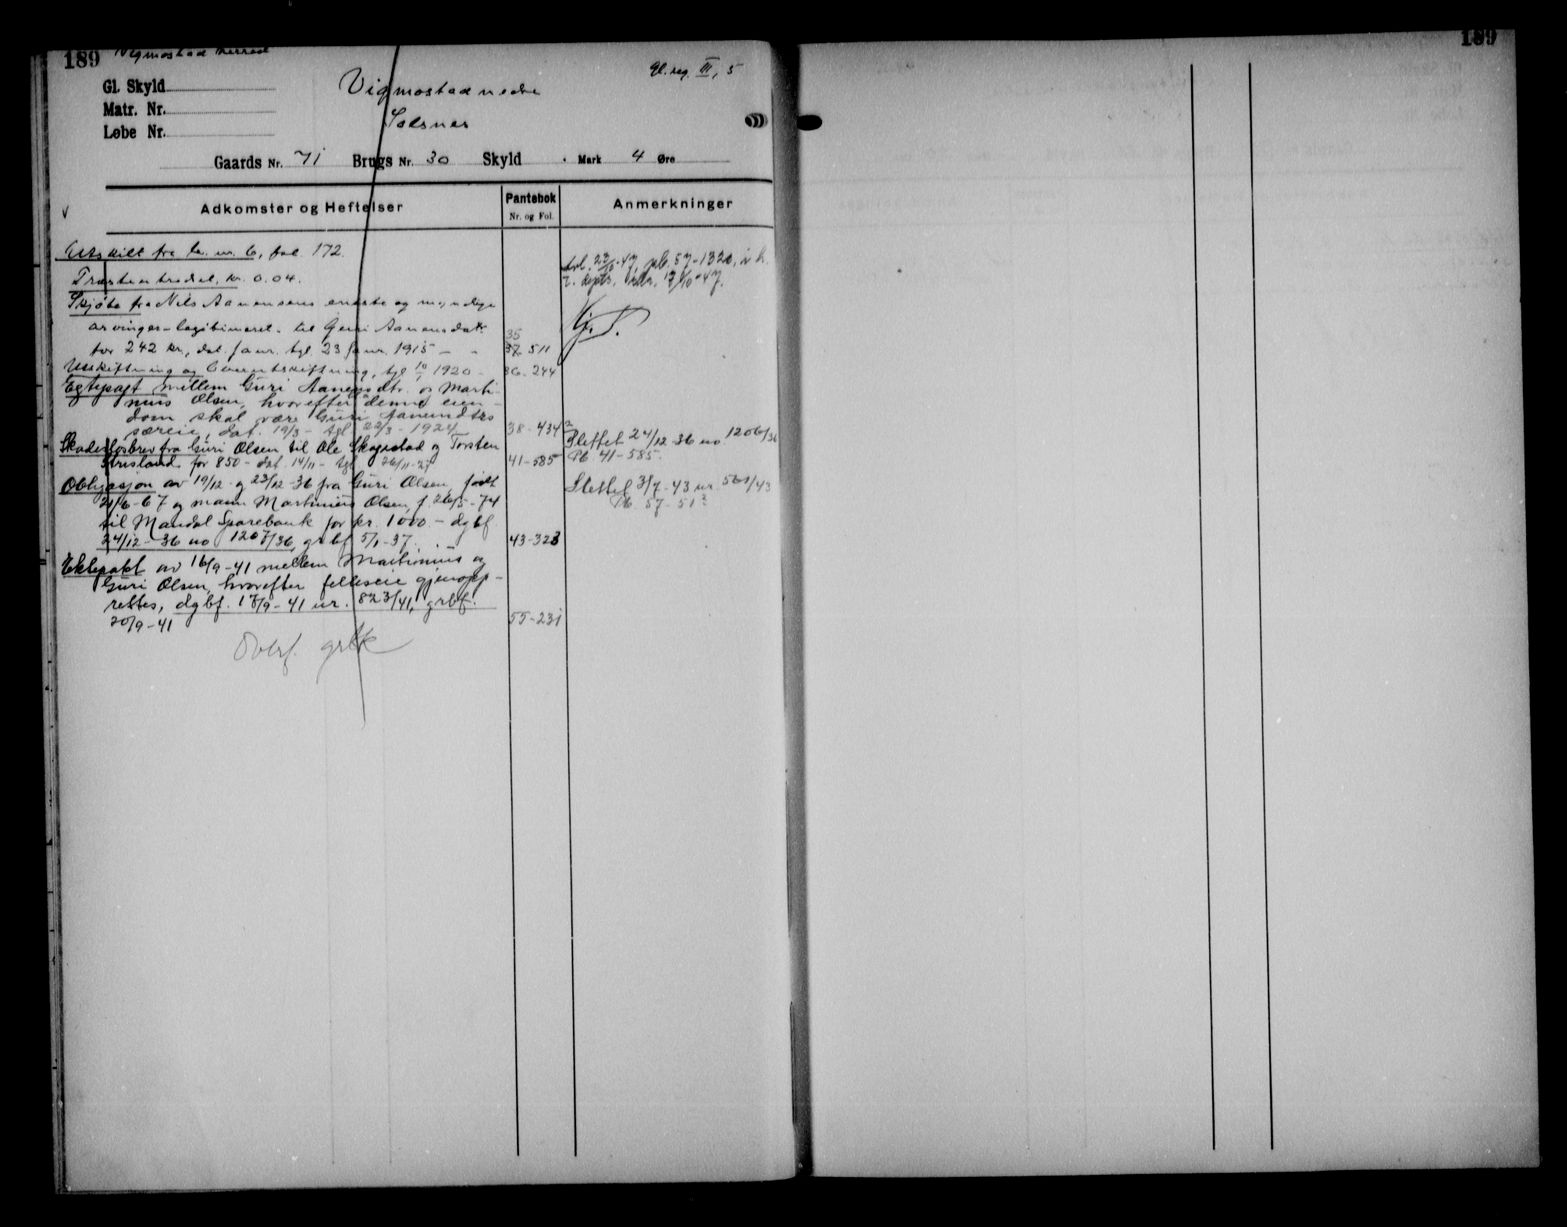 189 Vigmostad herred
Gl. reg. III, 5
Gl. Skyld
Matr. Nr.
Løbe Nr.
Vigmostad nedre
Solsnes
Gaards Nr. 71 Brugs Nr. 30 Skyld Mark 4 Øre
Adkomster og Heftelser
Pantebok
Nr. og Fol.
Anmerkninger
Utskilt fra br. nr. 6, fol. 172.
kr. 0.04.
Skjøte fra Nils Aanensens eneste og myndige
arvinger - legitimeret - til Guri Aanensdatr.
for 242 kr., dat. janr. tgl. 23 janr. 1915 - -
35
37 511
Utskiftning og tgl 10/1 1920 -
36-244
Egtepagt mellem Guri Aanensdtr. og Marti-
nius Olsen, hvorefter denne eien-
dom skal være Guri Aanundtrs
særeie, dat. 19/3 - tgl 22/3 - 1924
38-434
Skadesløsbrev fra Guri Olsen til Ole Skogestad og Torsten
for 850 - dat. 14/11 - tgl 26/11-
41-585
Obligasjon av 19/12 og 23/12-36 fra Guri Olsen, født
21/6-67 og mann Martinius Olsen, f. 26/5-74
til Mandal Sparebank for kr. 1000.- dgbf
24/12-36 no 1207/36, grbf 5/1-37.
43-323
Ektepakt av 16/9-41 mellem Martinius og
Guri Olsen, hvorefter felleseie gjenopp-
rettes, dgbf. 17/9-41 nr. 823/41, grbf.
20/9-41
55-231
Overf. grbk
47, pb. 57-1320,
Slettet 24/12-36 no 1206/36
Pb 41-585.
Slettet 3/7-43 nr. 561/43
Pb 57-51
189